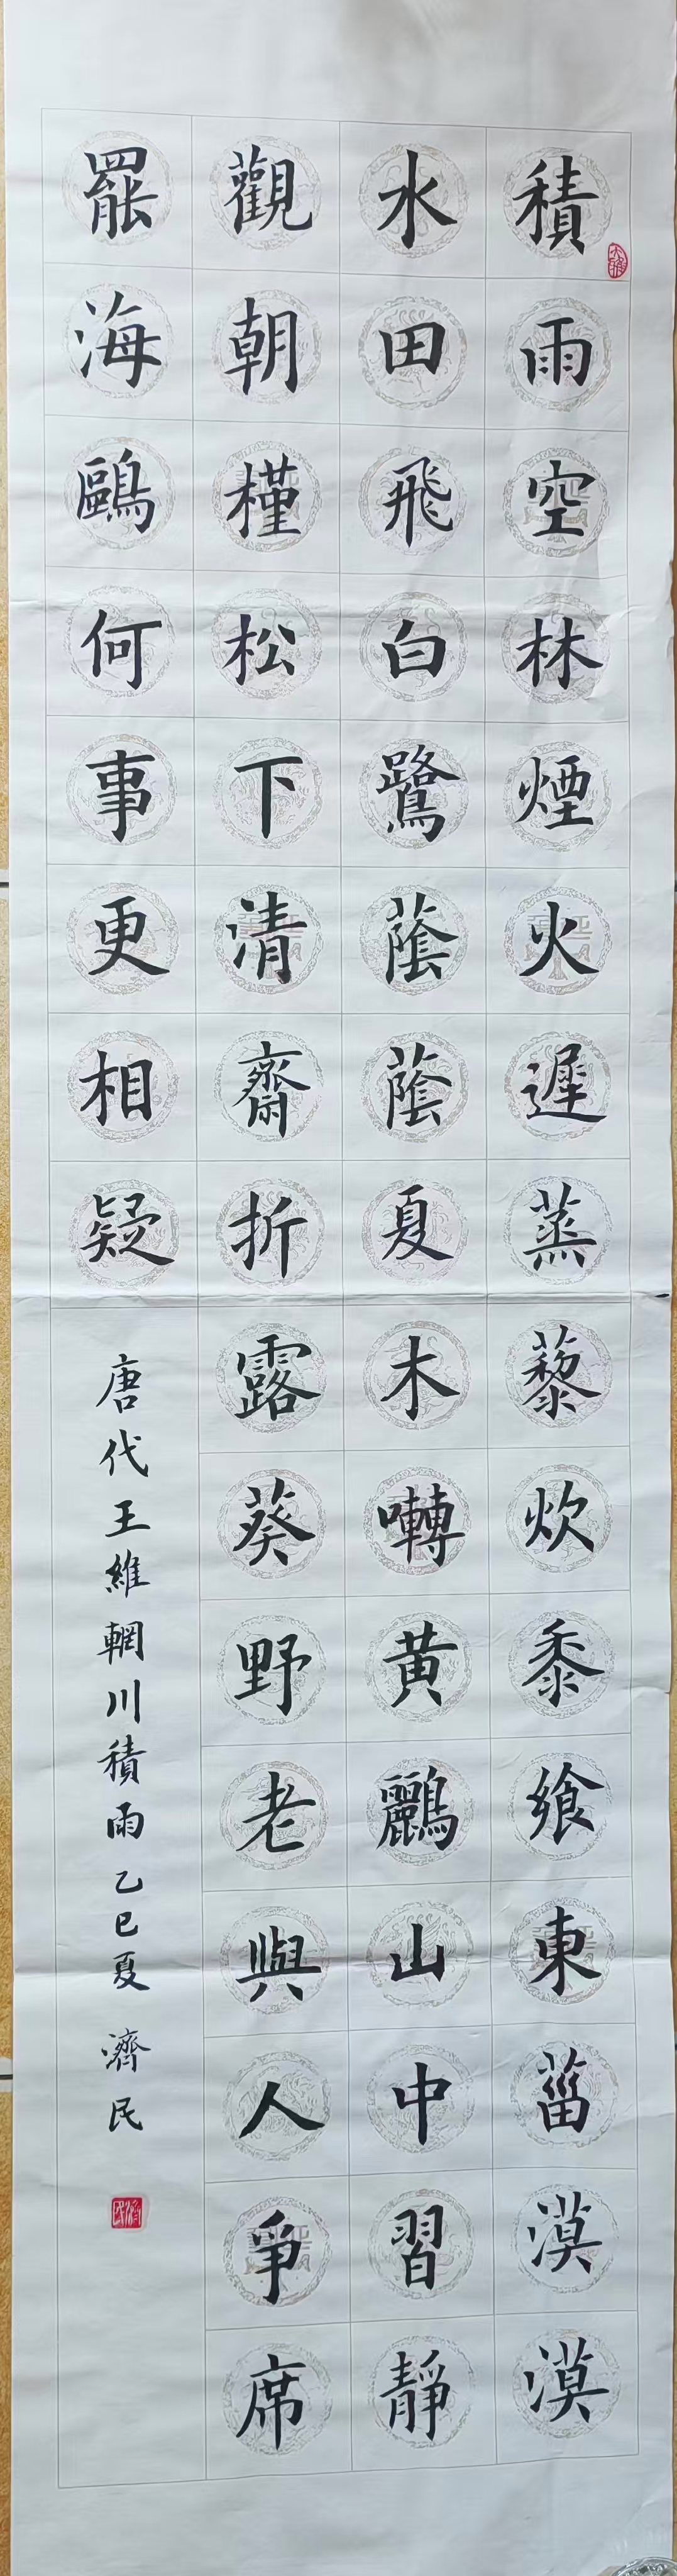 積雨空林煙火遲蒸藜炊黍餉東菑漠漠
水田飛白鷺蔭蔭夏木囀黃鸝山中習靜
觀朝槿松下清齋折露葵野老與人爭席
罷海鷗何事更相疑
唐代王維輞川積雨乙巳夏 濟民